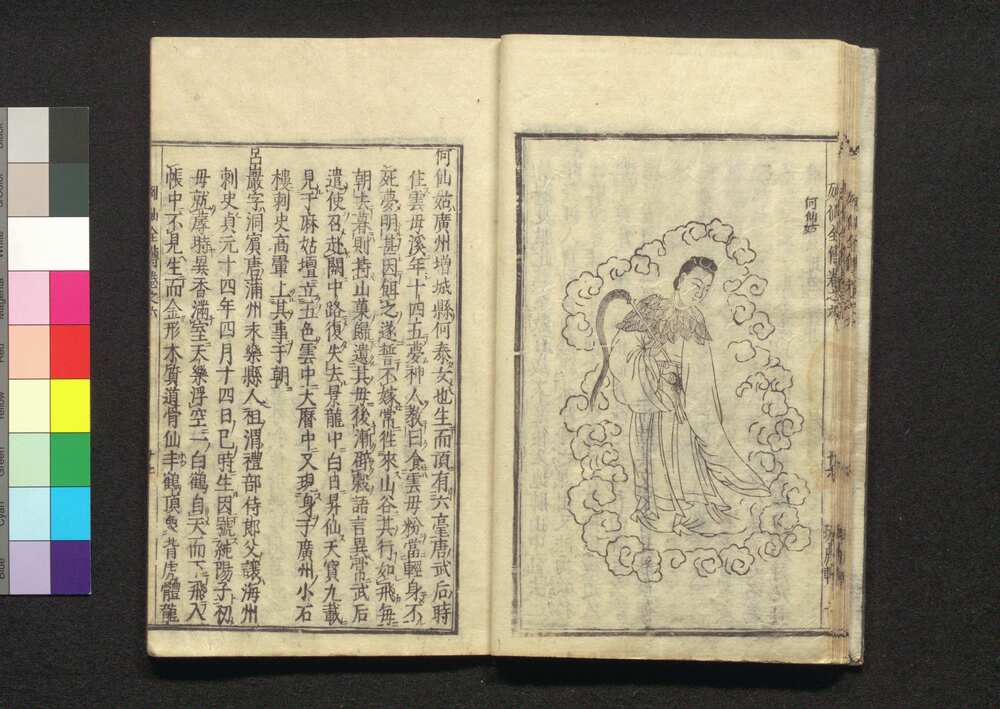 何仙姑
何仙姑廣州増城縣何泰女也生而頂有六毫唐武后時
住雲母溪年十四五夢神人教曰食雲母粉當輕身不
死夢明甚因餌之遂誓不嫁常往來山谷其行如飛每
朝去暮則持山菓歸遺其母後漸辟穀語言異常武后
遣使召赴闕中路復失去景龍中白日昇仙天寶九載
見于麻姑壇立五色雲中大曆中又現身于廣州小石
樓刺史高翬上其事于朝
呂巖字洞賓唐蒲州永樂縣人祖渭禮部侍郎父讓海州
刺史貞元十四年四月十四日巳時生因號純陽子初
母就蓐時異香滿室天樂浮空一白鶴自天而下飛入
帳中不見生而金形木質道骨仙丰鶴頂龜背虎體龍
列仙全傳卷之六